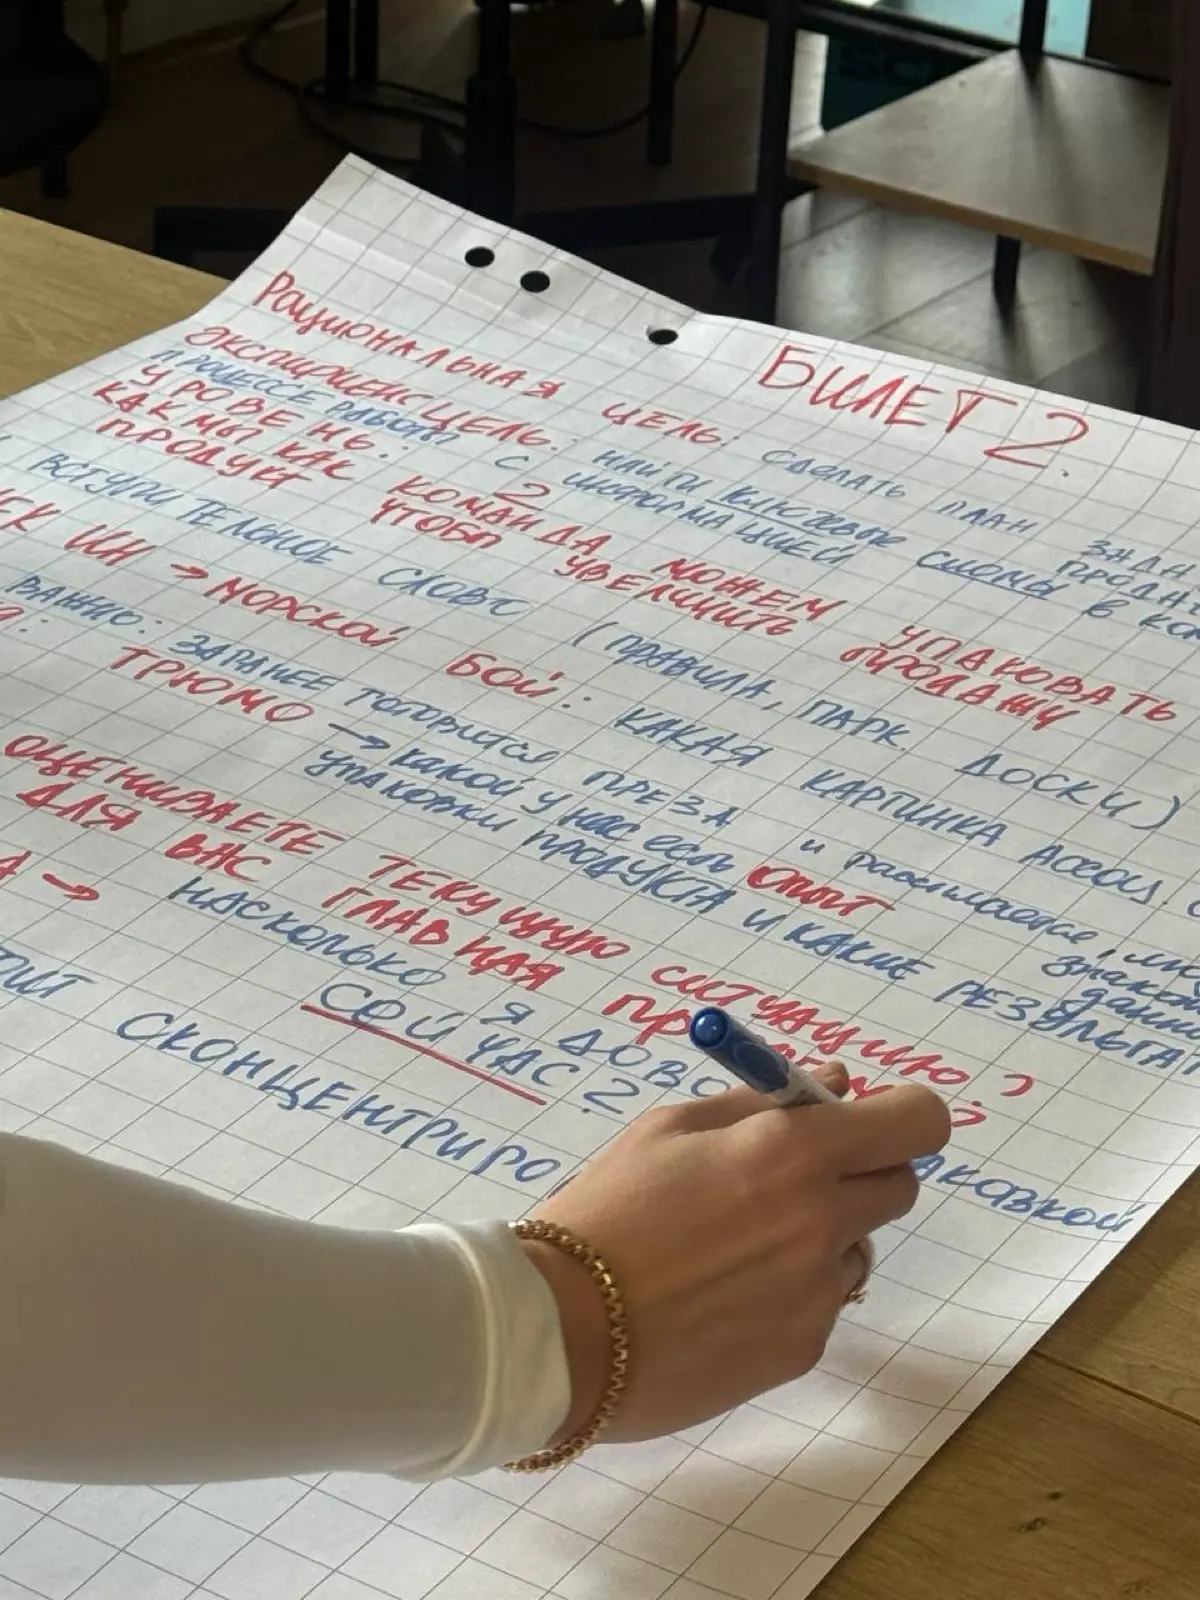 БИЛЕТ 2.
РАЦИОНАЛЬНАЯ ЦЕЛЬ: СДЕЛАТЬ ПЛАН
ЦЕЛЬ: НАЙТИ КЛЮЧЕВЫЕ СМЫСЛЫ В
ПРОЦЕССЕ РАБОТЫ С ИНФОРМАЦИЕЙ
УРОВЕНЬ: 2
КАК МЫ КАК КОМАНДА МОЖЕМ УПАКОВАТЬ
ПРОДУКТ ЧТОБЫ УВЕЛИЧИТЬ ПРОДАЖИ
ВСТУПИТЕЛЬНОЕ СЛОВО (ПРАВИЛА, ПАРК. ДОСКИ)
ЧЕК ИН → МОРСКОЙ БОЙ: КАКАЯ КАРТИНКА АССОЦ.
ЗАРАНЕЕ ГОТОВИТСЯ ПРЕЗА и рассылается,
ТРЮМО → КАКОЙ У НАС ЕСТЬ ОПЫТ
УПАКОВКИ ПРОДУКТА И КАКИЕ РЕЗУЛЬТАТ
ОЦЕНИВАЕТЕ ТЕКУЩУЮ СИТУАЦИЮ?
ДЛЯ ВАС ГЛАВНАЯ
А → НАСКОЛЬКО Я ДОВО
СЕЙЧАС?
СКОНЦЕНТРИРО АКОВКОЙ